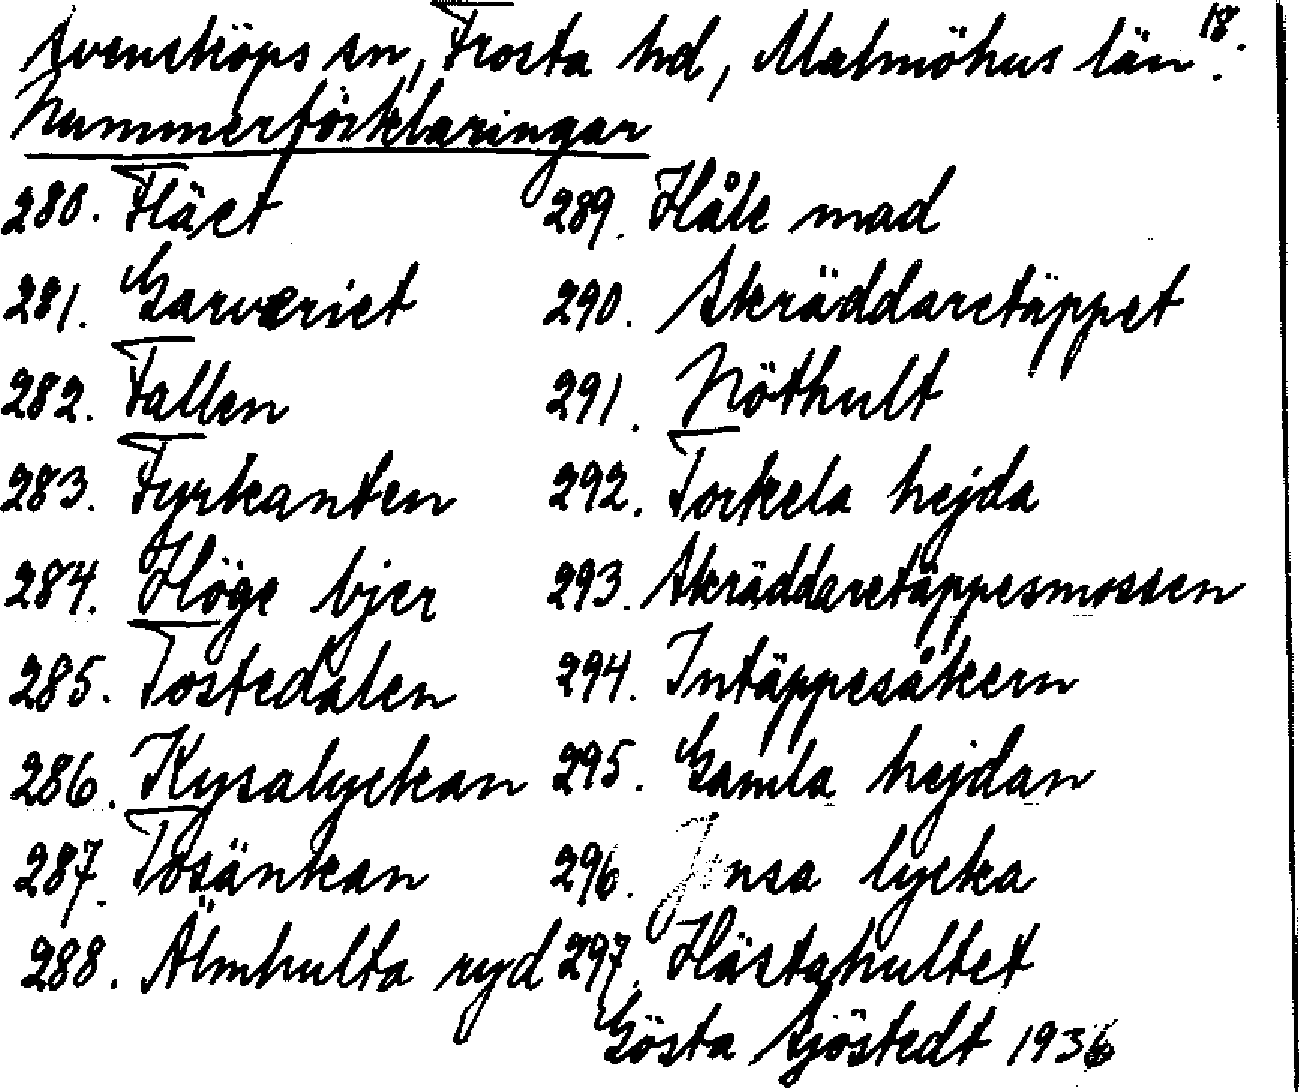 Svensköps sn, Frosta hd, Malmöhus län. 18.
Nummerförklaringar
280. Fläet
281. Garveriet
282. Fallen
283. Fyrkanten
284. Höge bjer
285. Tostedalen
286. Kysalyckan
287. Tosänkan
288. Älmhulta ryd
289. Håle mad
290. Skräddaretäppet
291. Nöthult
292. Torkela hejda
293. Skräddaretäppesmossen
294. Intäppesåkern
295. Gamla hejdan
296. Jönsa lycka
297. Hästahultet
Gösta Sjöstedt 1936